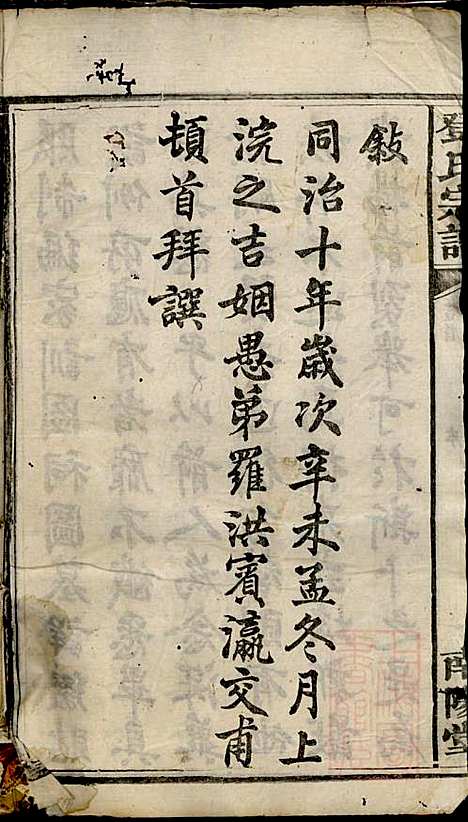 鄧氏宗譜
南陽堂
敍
同治十年歲次辛未孟冬月上
浣之吉姻愚弟羅洪賓瀛交甫
頓首拜譔